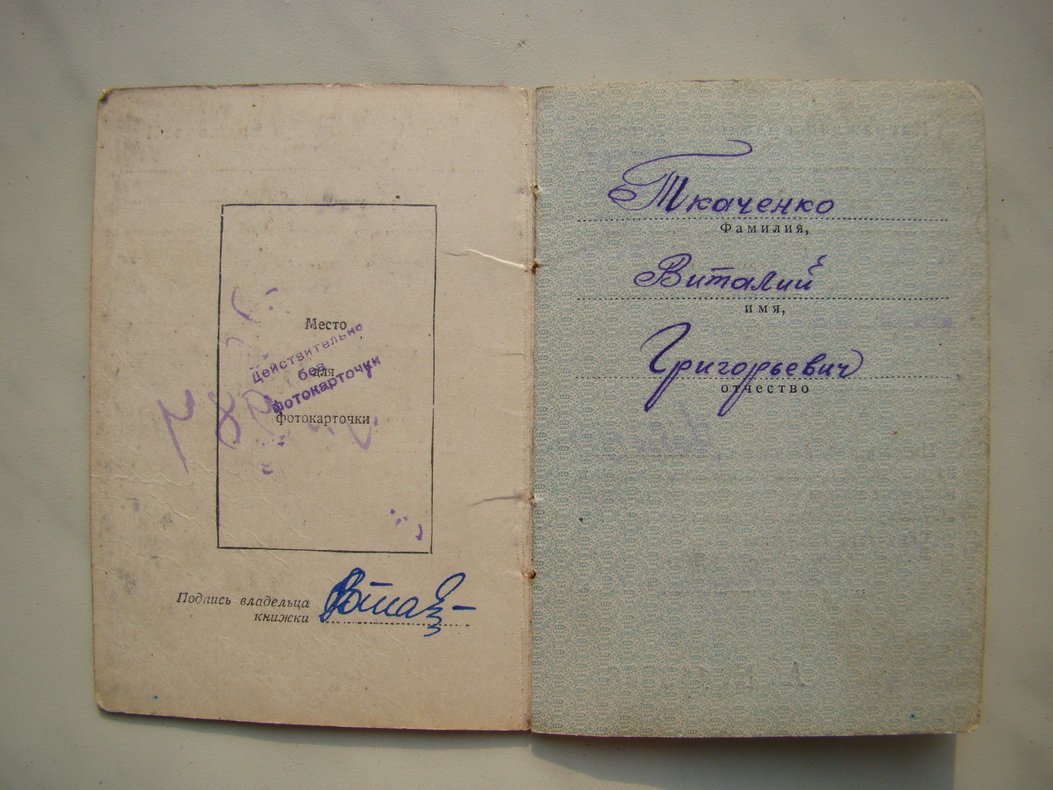 Место
действительно
без
для
фотокарточки
фотокарточки
Подпись владельца
книжки
Ткаченко
Фамилия,
Виталий
имя,
Григорьевич
отчество